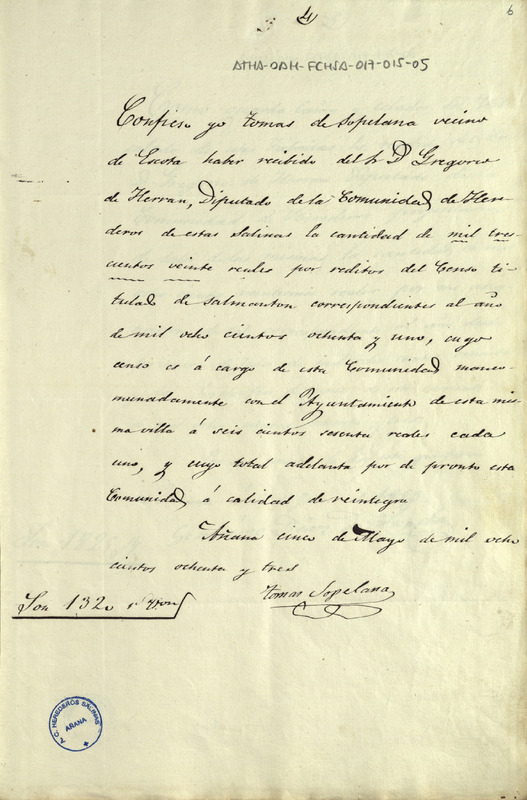 4
6
ATHA-DAH-FCHSA-017-015-05
Confieso yo tomas de Sopelana vecino
de Escota haber recibido del Sr Dn Gregorio
de Herran, Diputado de la Comunidad de Here-
deros de estas Salinas la cantidad de mil tres-
cientos veinte reales por reditos del Censo ti-
tulado de salmanton correspondientes al año
de mil ocho cientos ochenta y uno, cuyo
censo es á cargo de esta Comunidad manco-
munadamente con el Ayuntamiento de esta mis-
ma villa á seis cientos sesenta reales cada
uno, y cuyo total adelanta por de pronto esta
Comunidad á calidad de reintegro
Añana cinco de Mayo de mil ocho
cientos ochenta y tres
tomas Sopelana
Son 1320 rs von
A. C. HEREDEROS SALINAS
AÑANA